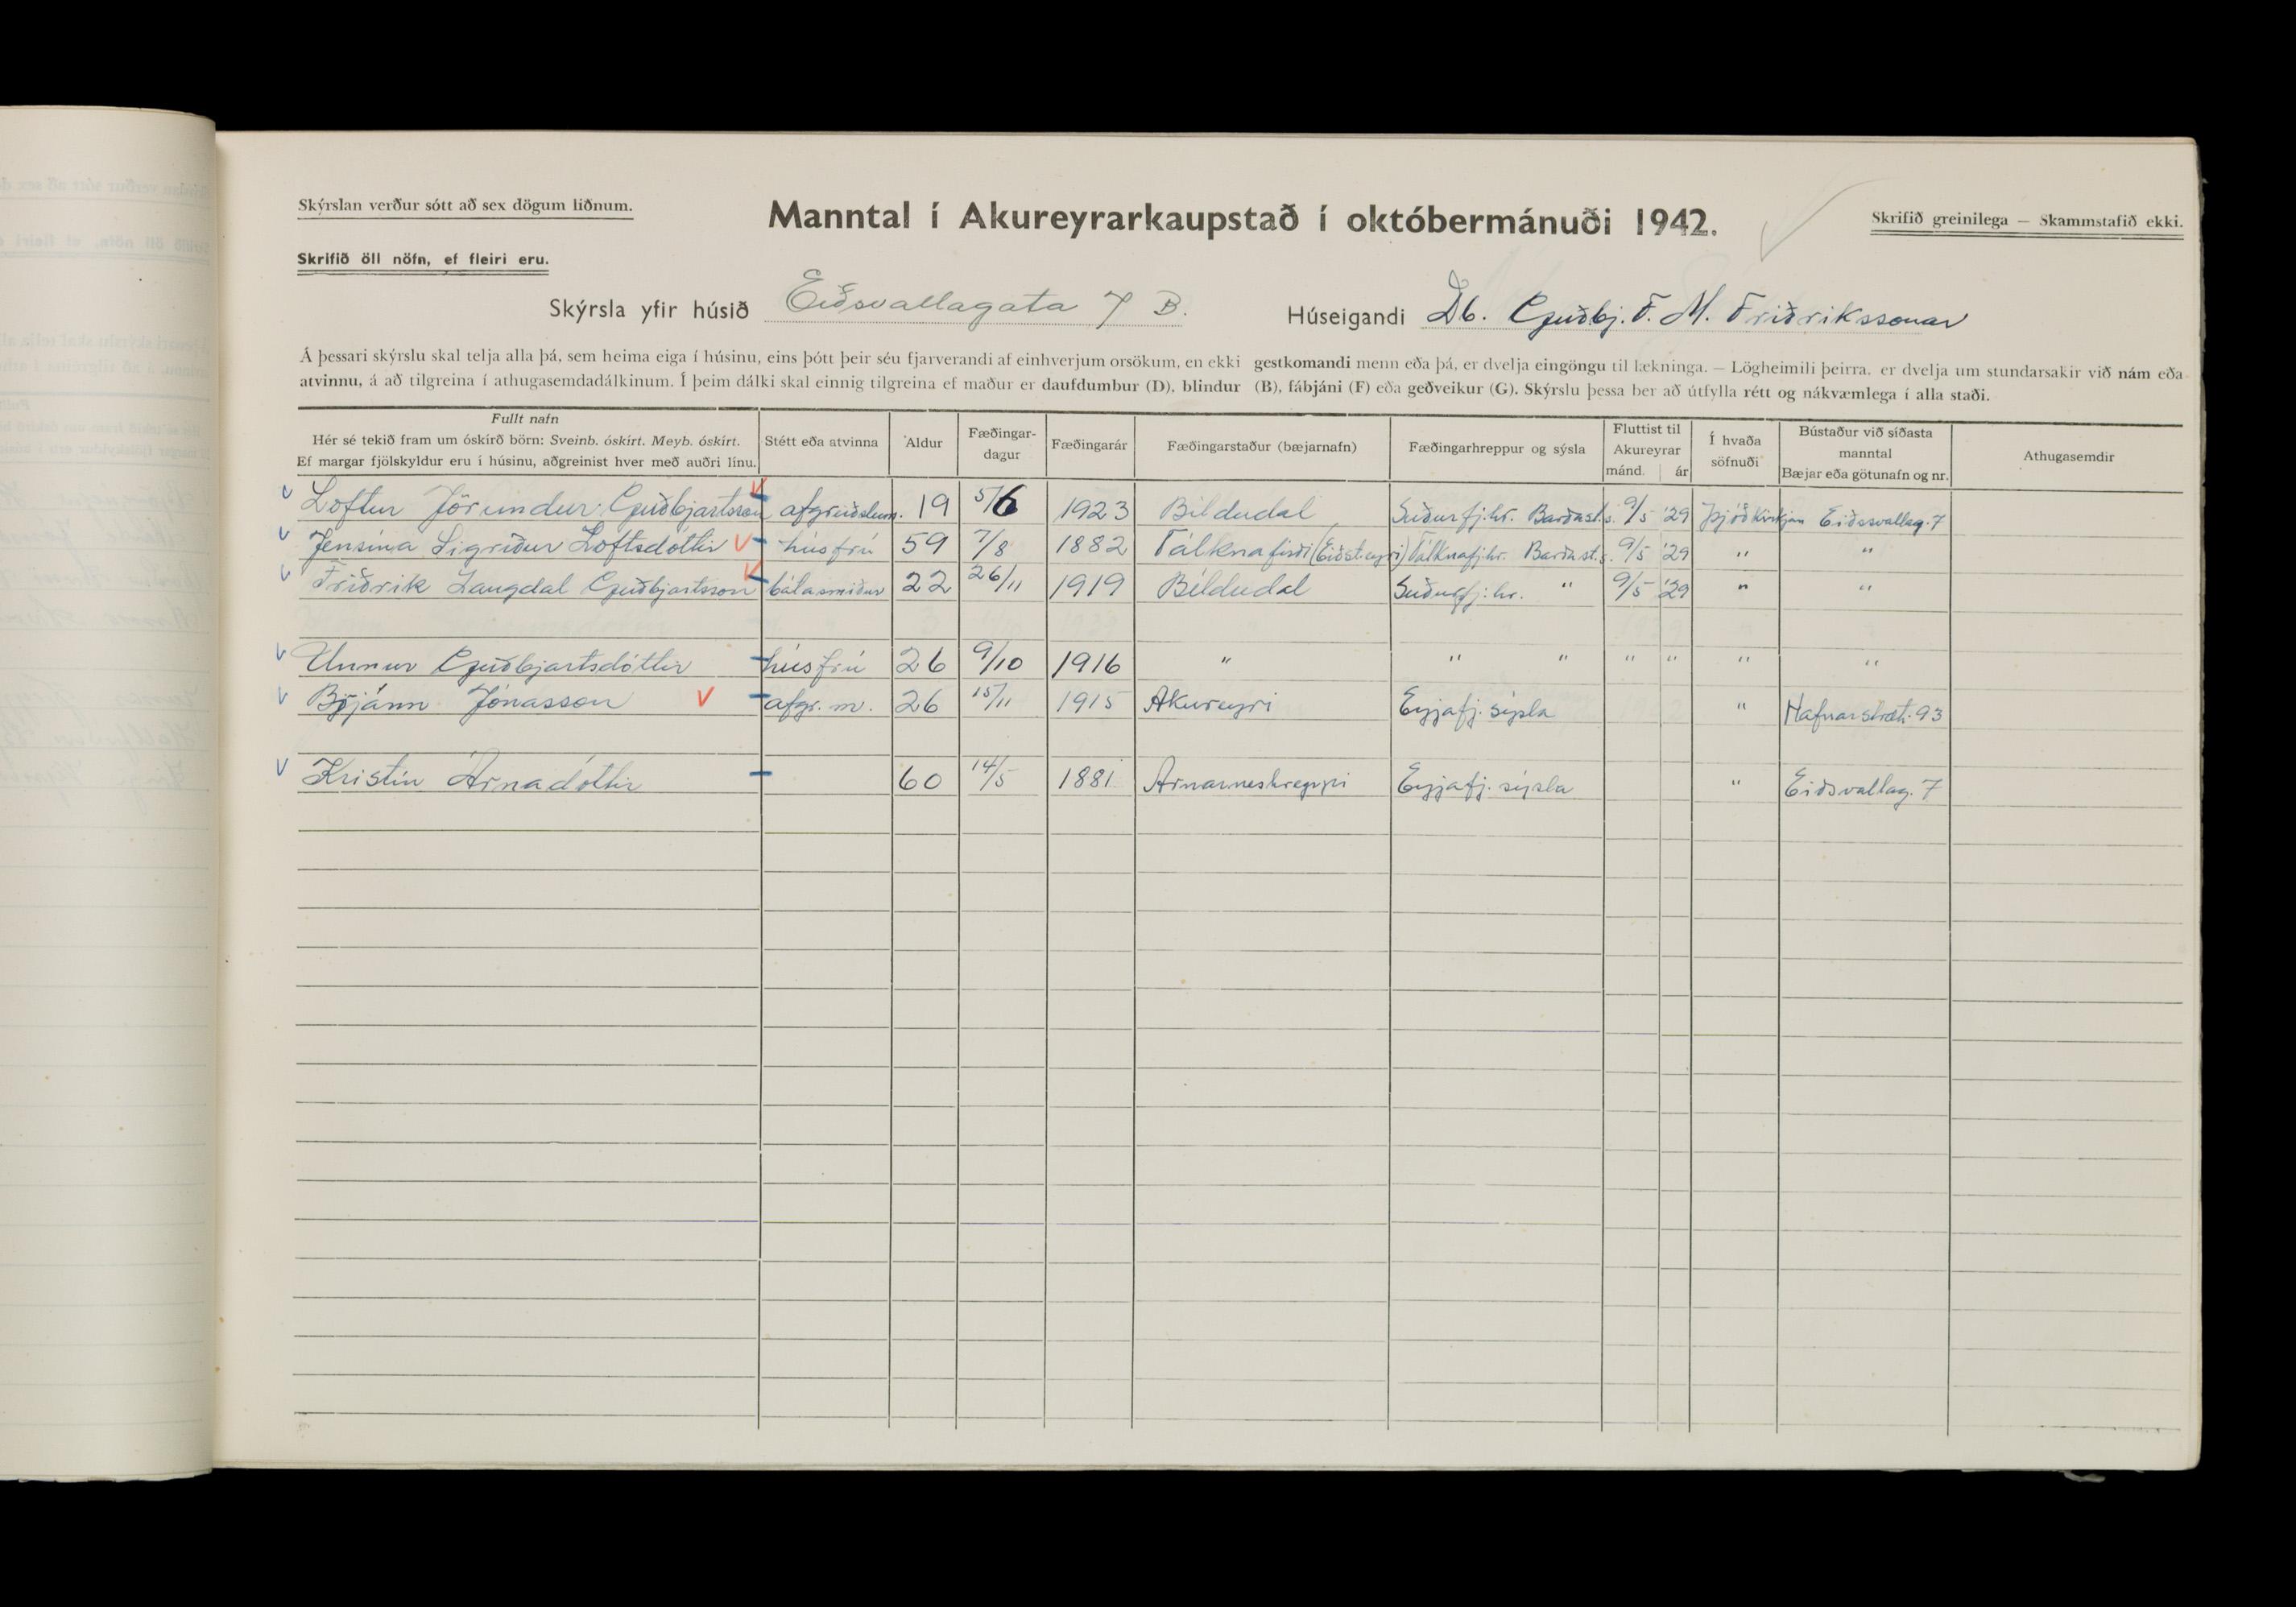 Skýrslan verður sótt að sex dögum liðnum.
Manntal í Akureyrarkaupstað í októbermánuði 1942.
Skrifið greinilega — Skammstafið ekki.
Skrifið öll nöfn, ef fleiri eru.
Skýrsla yfir húsið Eiðsvallagata 7 B. Húseigandi Db. Guðbj. F. M. Friðrikssonar
Á þessari skýrslu skal telja alla þá, sem heima eiga í húsinu, eins þótt þeir séu fjarverandi af einhverjum orsökum, en ekki gestkomandi menn eða þá, er dvelja eingöngu til lækninga. — Lögheimili þeirra, er dvelja um stundarsakir við nám eða
atvinnu, á að tilgreina í athugasemdadálkinum. Í þeim dálki skal einnig tilgreina ef maður er daufdumbur (D), blindur (B), fábjáni (F) eða geðveikur (G). Skýrslu þessa ber að útfylla rétt og nákvæmlega í alla staði.
Fullt nafn
Hér sé tekið fram um óskírð börn: Sveinb. óskírt. Meyb. óskírt.
Ef margar fjölskyldur eru í húsinu, aðgreinist hver með auðri línu.
Stétt eða atvinna
Aldur
Fæðingar-
dagur
Fæðingarár
Fæðingarstaður (bæjarnafn)
Fæðingarhreppur og sýsla
Fluttist til
Akureyrar
mánd. ár
Í hvaða
söfnuði
Bústaður við síðasta
manntal
Bæjar eða götunafn og nr.
Athugasemdir
Loftur Jörundur Guðbjartsson afgreiðslum. 19 5/6 1923 Bíldudal Suðurfj.hr. Barðast.s. 9/5 '29 Þjóðkirkjan Eiðsvallag. 7
Jensína Sigríður Loftsdóttir húsfrú 59 7/8 1882 Tálknafirði (Eiðst.eyri) Tálknafj.hr. Barðast.s. 9/5 '29 " "
Friðrik Langdal Guðbjartsson bátasmiður 22 26/11 1919 Bíldudal Suðurfj.hr. " 9/5 '29 " "
Unnur Guðbjartsdóttir húsfrú 26 9/10 1916 " " " " " " "
Brjánn Jónasson afgr. m. 26 15/11 1915 Akureyri Eyjafj. sýsla " Hafnarstræti 93
Kristín Árnadóttir 60 14/5 1881 Arnarneshreppi Eyjafj. sýsla " Eiðsvallag. 7